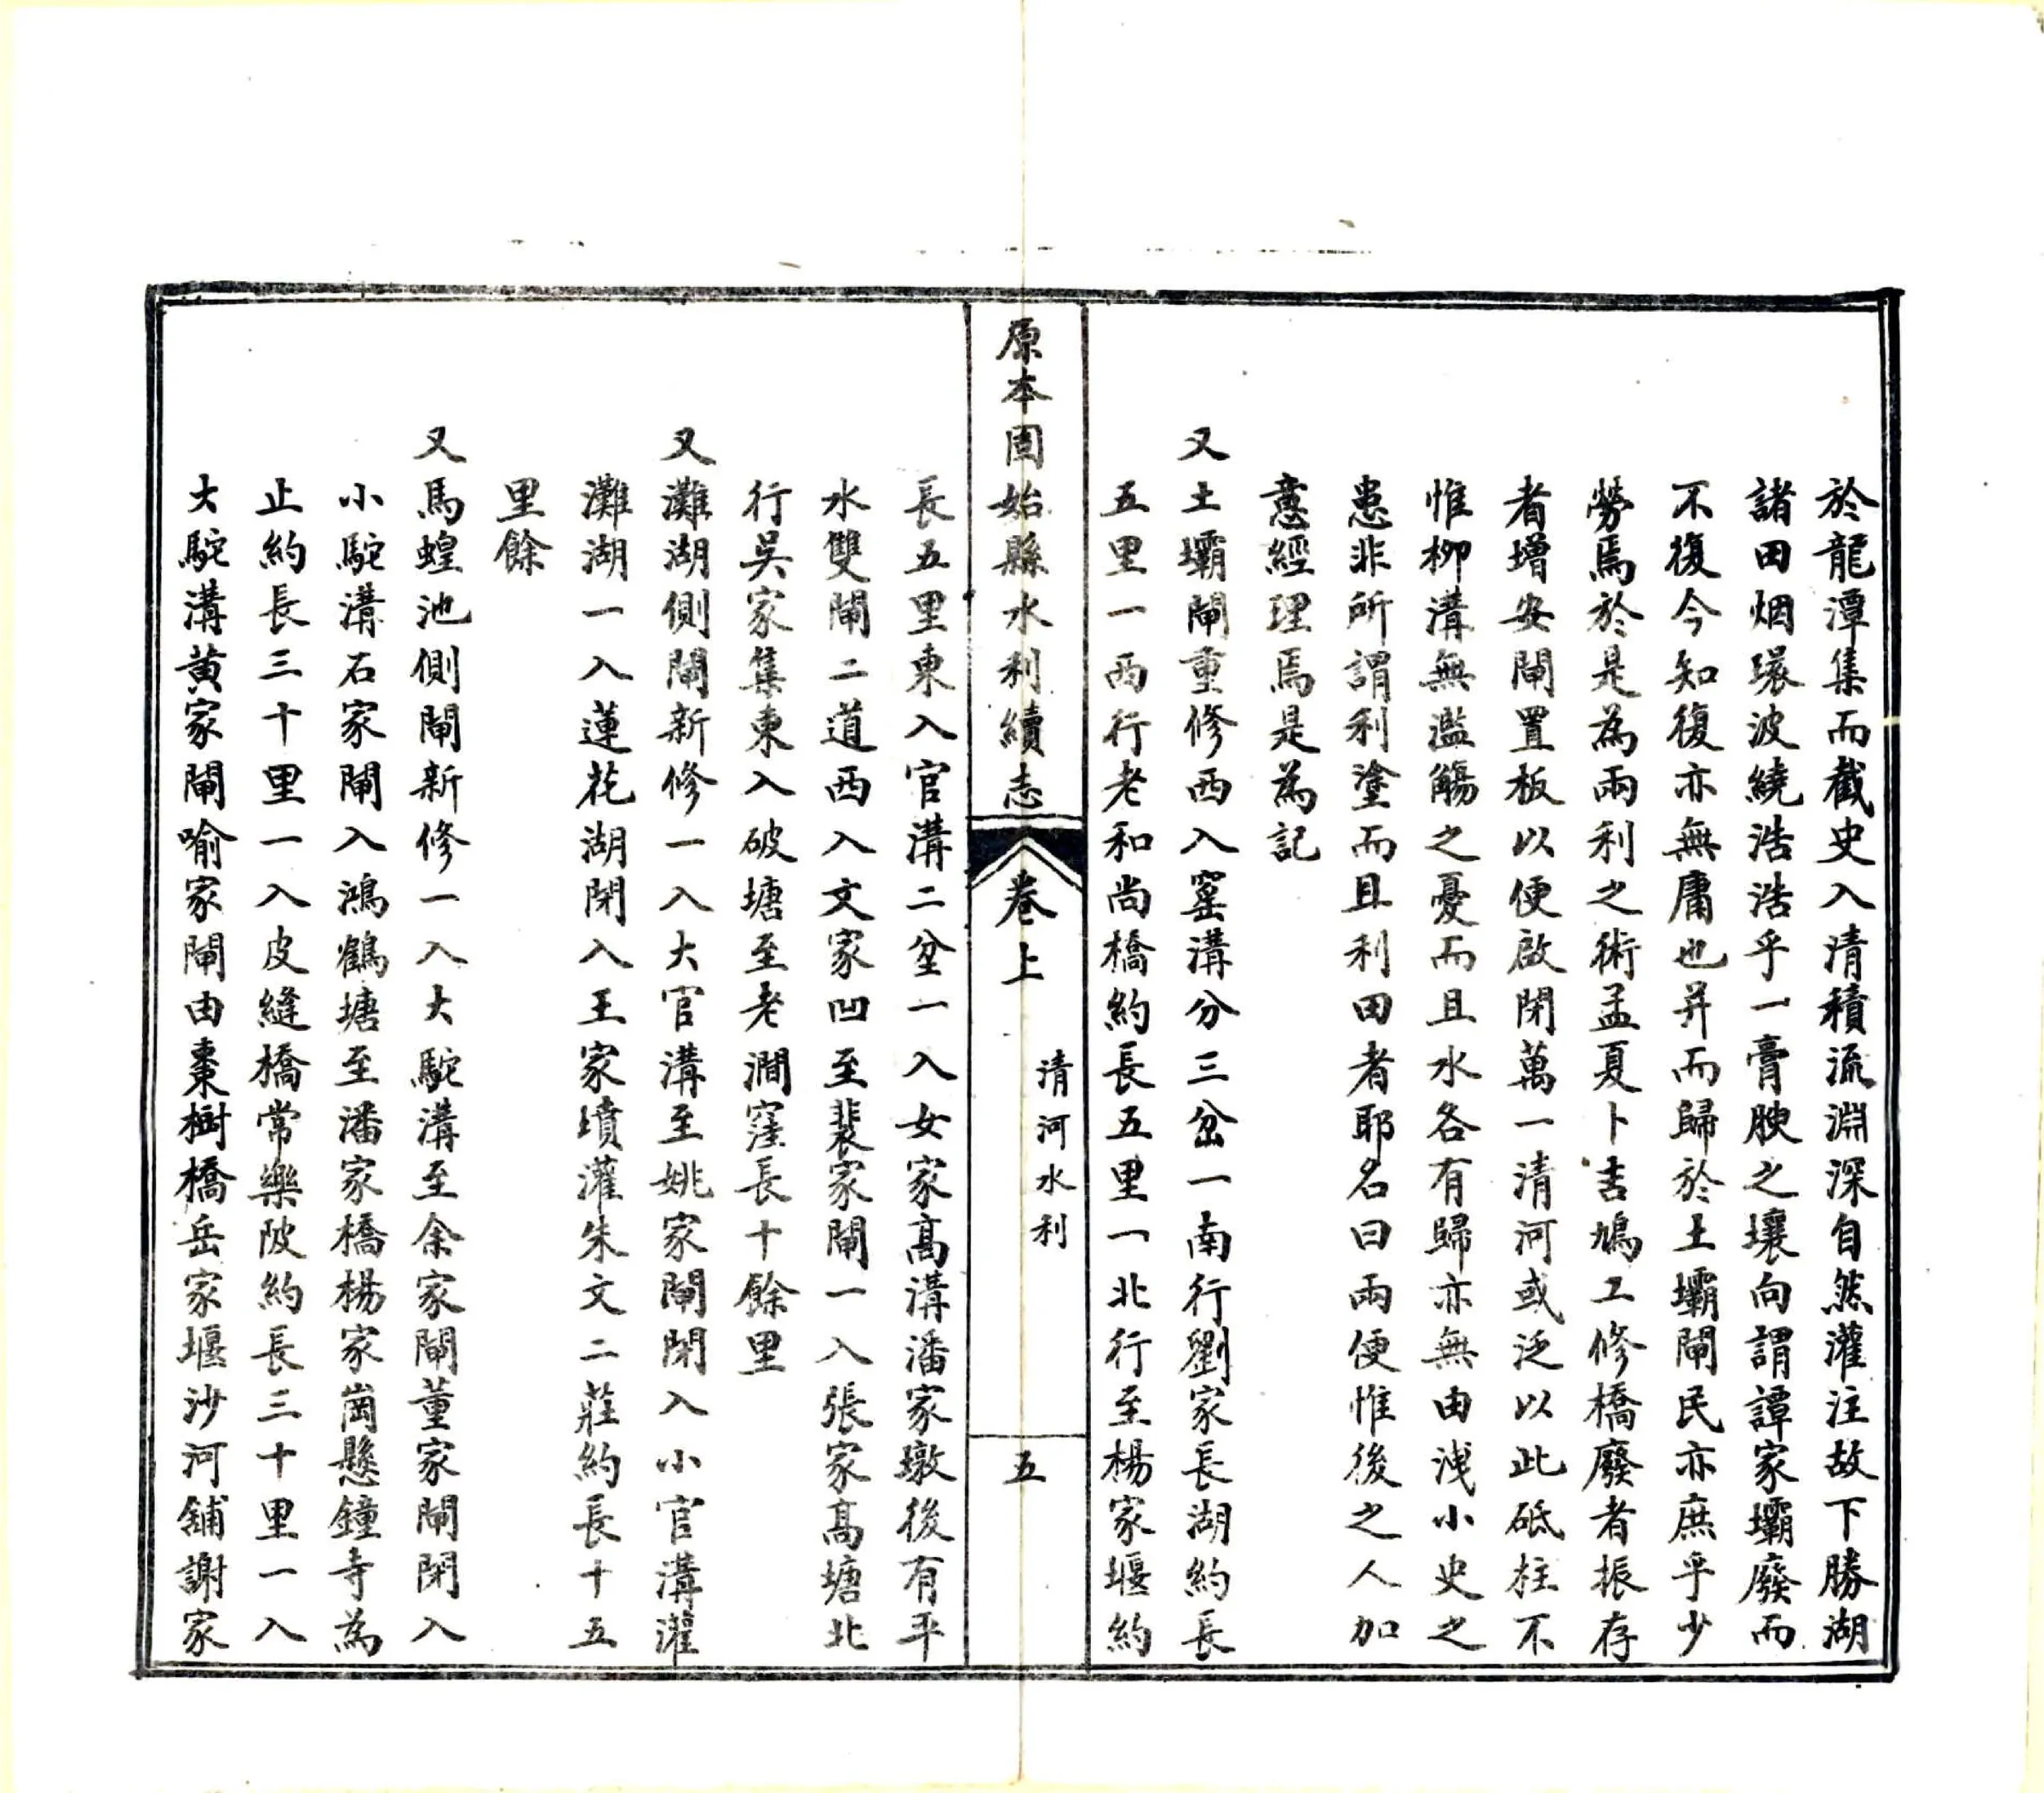 於龍潭集而截史入清積流淵深自然灌注故下勝湖
諸田烟環波繞浩浩乎一膏腴之壤向謂譚家壩廢而
不復今知復亦無庸也并而歸於土壩閘民亦庶乎少
勞焉於是為兩利之術孟夏卜吉鳩工修橋廢者振存
者增安閘置板以便啟閉萬一清河或泛以此砥柱不
惟柳溝無濫觴之憂而且水各有歸亦無由洩小史之
患非所謂利塗而且利田者耶名曰兩便惟後之人加
意經理焉是為記
又土壩閘重修西入窰溝分三岔一南行劉家長湖約長
五里一西行老和尚橋約長五里一北行至楊家堰約
原本固始縣水利續志 卷上 清河水利 五
長五里東入官溝二岔一入女家高溝潘家墩後有平
水雙閘二道西入文家凹至裴家閘一入張家高塘北
行吳家集東入破塘至老澗窪長十餘里
又灘湖側閘新修一入大官溝至姚家閘閉入小官溝灌
灘湖一入蓮花湖閉入王家墳灌朱文二莊約長十五
里餘
又馬蝗池側閘新修一入大駝溝至余家閘董家閘閉入
小駝溝石家閘入鴻鶴塘至潘家橋楊家崗懸鐘寺為
止約長三十里一入皮縫橋常樂陂約長三十里一入
大駝溝黃家閘喻家閘由棗樹橋岳家堰沙河舖謝家